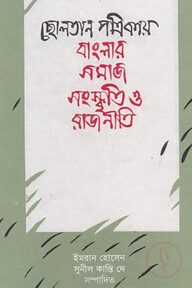 ছোলতান পত্রিকায়
বাংলার
সমাজ
সংস্কৃতি ও
রাজনীতি
ইমরান হোসেন
সুনীল কান্তি দে
সম্পাদিত